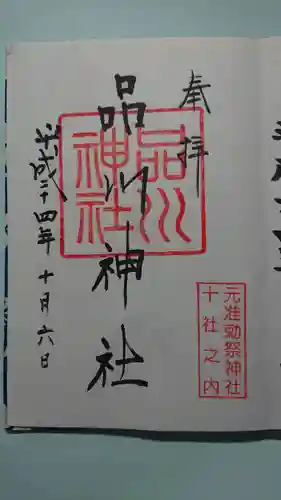 奉拝
品川神社
平成二十四年十月六日
品川神社
元准勅祭神社
十社之内